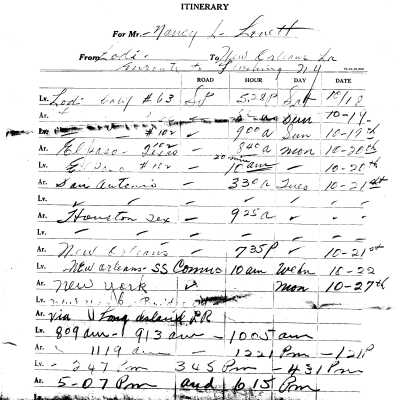 ITINERARY
For Mr. Nancy L. Lovett
From Lodi To New Orleans La
Enroute to Flushing N.Y
ROAD HOUR DAY DATE
Lv. Lodi Calif #63 S.P. 5:28 P Sat 10/18
Ar. Sun 10-19
Lv. #102 9:00 A Sun 10-19th
Ar. El Paso Texas #102 840 A Mon 10-20th
20 min
Lv. El Paso #102 10 am 10-20th
Ar. San Antonio 330 A Tues 10-21st
Lv.
Ar. Houston Tex 925 A
Lv.
Ar. New Orleans 735 P 10-21st
Lv. New Orleans - SS Comus 10 am Wedn 10-22
Ar. New York Mon 10-27th
Lv.
Ar. via Long Island RR
Lv. 809 am - 913 am - 1005 am
Ar. 1119 am - 1221 Pm - 121 P
Lv. 247 Pm 345 Pm - 431 Pm
Ar. 5-07 Pm and 615 Pm